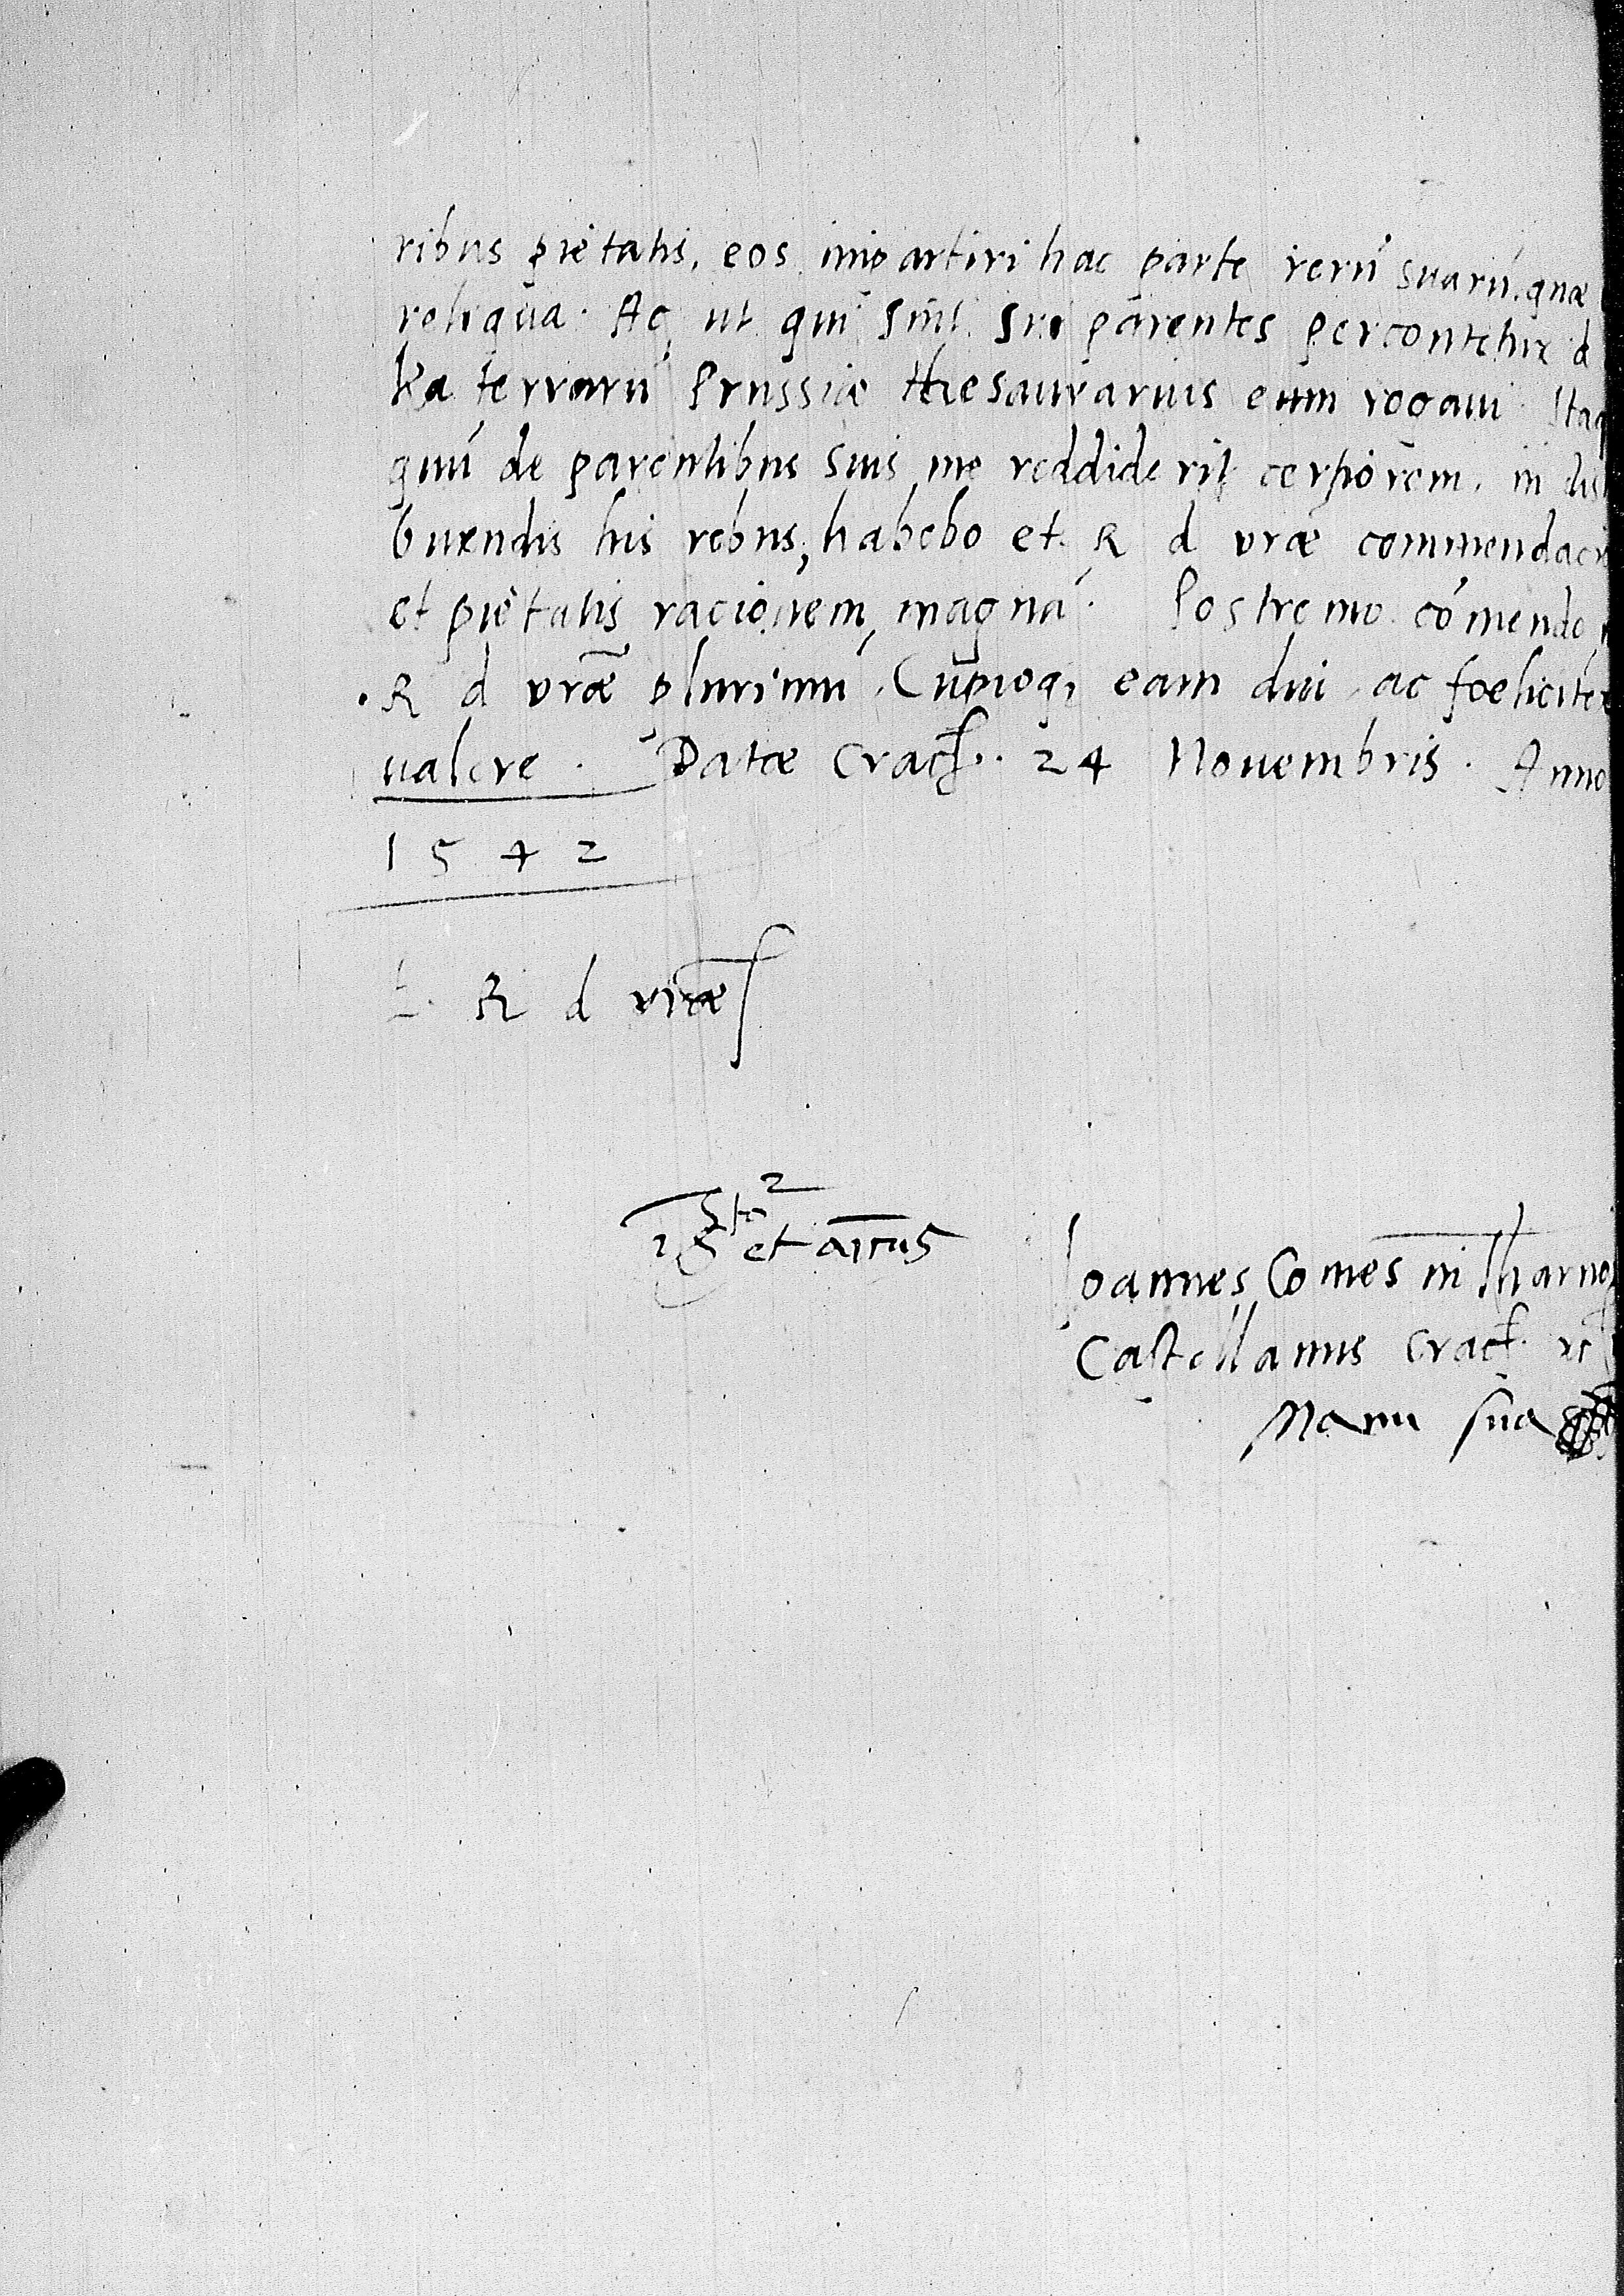 ribus pietatis, eos impartiri hac parte rerũ suarũ, quæ
reliqua. Ac ut qui sint sui parentes percontetur d
terrarũ Prussiæ thesaurarius eum rogaui Itaq
quũ de parentibus suis me reddiderit cerciorem, in dis
buendis his rebus, habebo et R d vræ commendaci
et pietatis racionem magnã. Postremo cõmendo
R d vræ plurimũ, Cupioq, eam diu ac foeliciter
ualere. Datæ Crac. 24 Nouembris. Anno
1542
E. R d vræ
et amicus
Ioannes Comes in Tharno
Castellanus Crac. etc
Manu sua